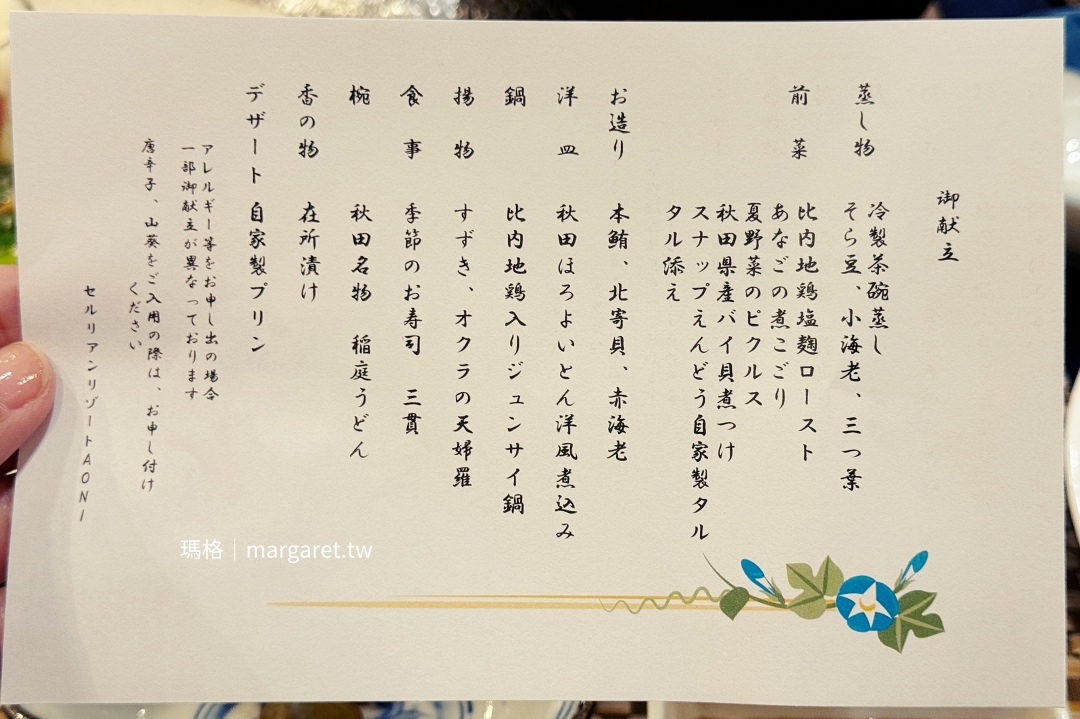 御献立
蒸し物 冷製茶碗蒸し
そら豆、小海老、三つ葉
前菜 比内地鶏塩麹ロースト
あなごの煮こごり
夏野菜のピクルス
秋田県産バイ貝煮つけ
スナップえんどう自家製タル
タル添え
お造り 本鮪、北寄貝、赤海老
洋皿 秋田ほろよいとん洋風煮込み
鍋 比内地鶏入りジュンサイ鍋
揚物 すずき、オクラの天婦羅
食事 季節のお寿司 三貫
椀 秋田名物 稲庭うどん
香の物 在所漬け
デザート 自家製プリン
アレルギー等をお申し出の場合
一部御献立が異なっております
唐辛子、山葵をご入用の際は、お申し付け
ください
セルリアンリゾートAONI
瑪格｜margaret.tw